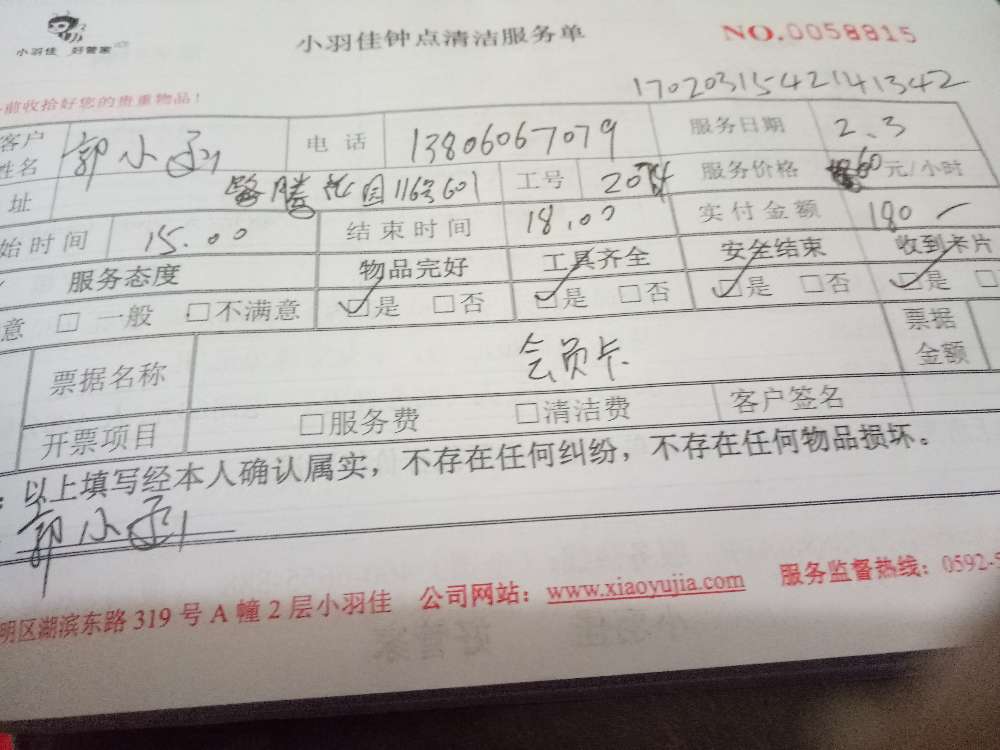 小羽佳 好管家
小羽佳钟点清洁服务单
NO.0058815
前收拾好您的贵重物品!
17020315421413​42
客户姓名 郭小函 电话 13806067079 服务日期 2.3
址 腾花园116号601 工号 服务价格 60元/小时
始时间 15.00 结束时间 18.00 实付金额 180
服务态度 物品完好 工具齐全 安全结束 收到卡片
意 □ 一般 □不满意 ☑是 □否 ☑是 □否 ☑是 □否 ☑是 □
票据名称 会员卡 票据金额
开票项目 □服务费 □清洁费 客户签名
:以上填写经本人确认属实,不存在任何纠纷,不存在任何物品损坏。
郭小函
明区湖滨东路 319 号 A 幢 2 层小羽佳 公司网站:www.xiaoyujia.com 服务监督热线:0592-5